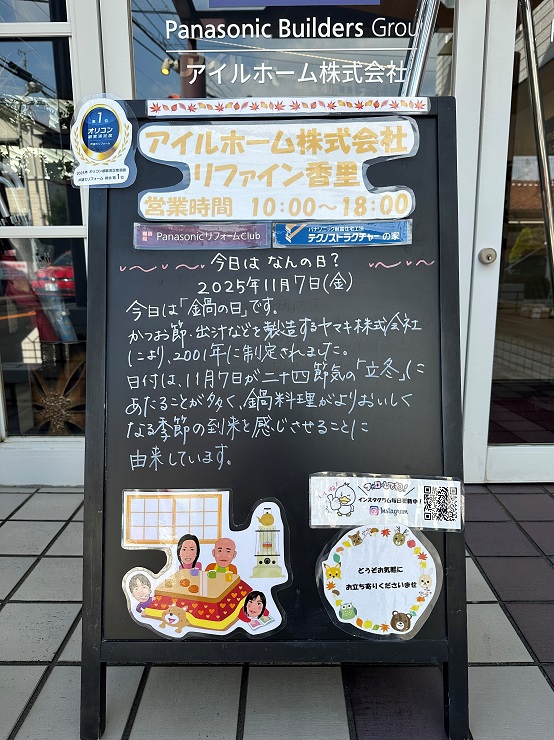 Panasonic Builders Grou
アイルホーム株式会社
第1位
オリコン
顧客満足度
アイルホーム株式会社
リファイン香里
営業時間 10:00〜18:00
PanasonicリフォームClub
パナソニック耐震住宅工法
テクノストラクチャーの家
今日は なんの日?
2025年11月7日(金)
今日は「鍋の日」です。
かつお節、出汁などを製造するヤマキ株式会社
により、2001年に制定されました。
日付は、11月7日が二十四節気の「立冬」に
あたることが多く、鍋料理がよりおいしく
なる季節の到来を感じさせることに
由来しています。
フォローしてね!
インスタグラム毎日更新中!
Instagram
どうぞお気軽に
お立ち寄りくださいませ